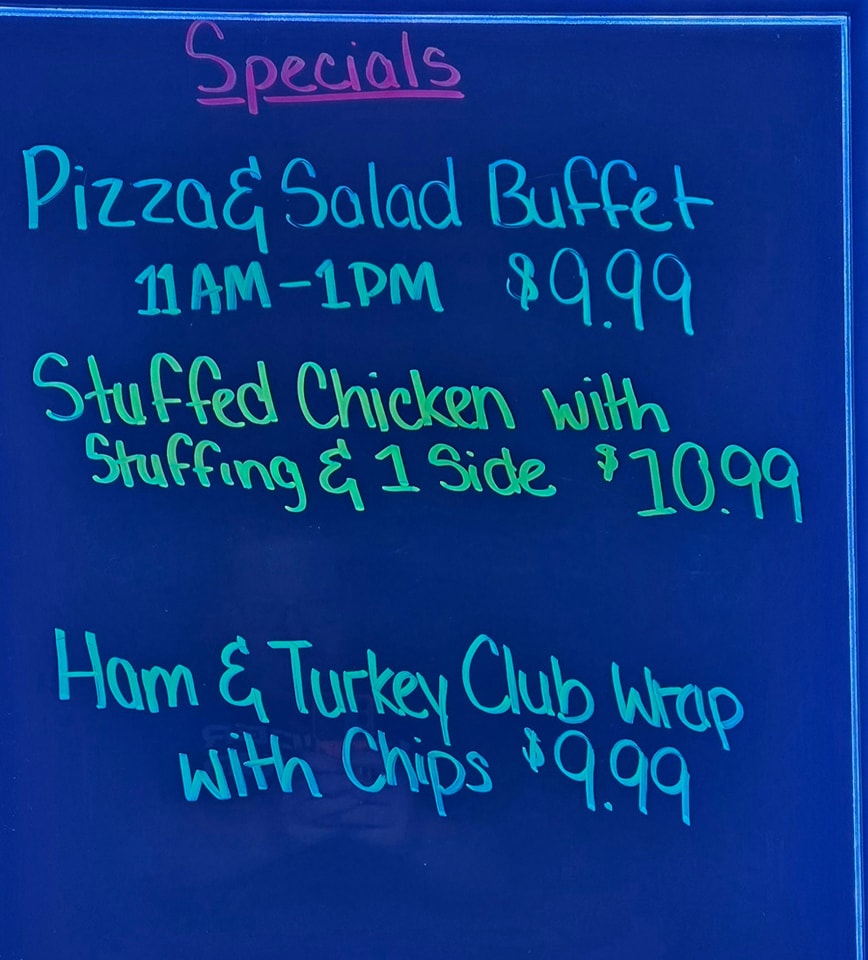 Specials
Pizza & Salad Buffet
11AM-1PM $9.99
Stuffed Chicken with
Stuffing & 1 Side $10.99
Ham & Turkey Club Wrap
with Chips $9.99